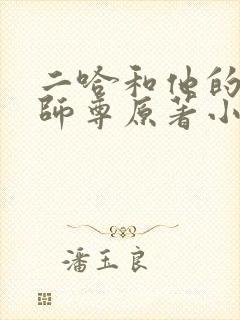 二哈和他的
師尊原著小
潘玉良